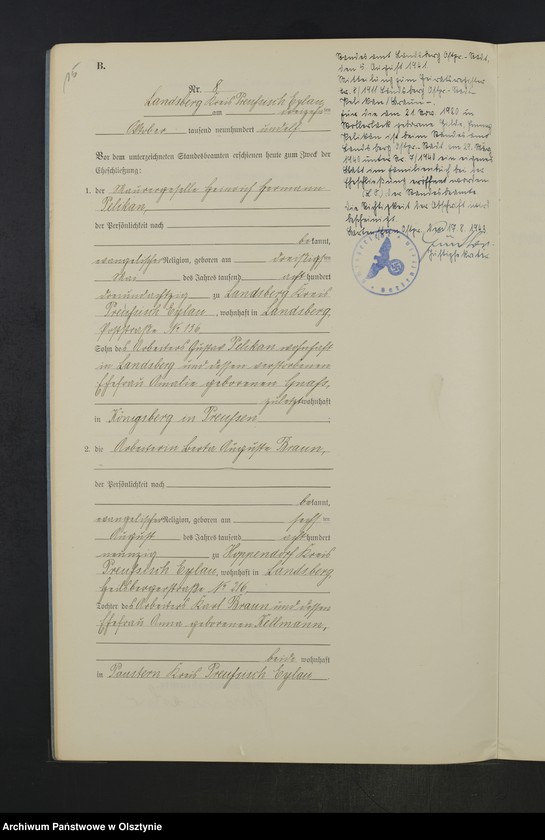 B.
Nr. 8
Landsberg Kreis Preußisch Eylau
am dreizehnten
Oktober tausend neunhundert und elf
Vor dem unterzeichneten Standesbeamten erschienen heute zum Zweck der
Eheschließung:
1. der Maurergeselle Heinrich Hermann
Pelikan,
der Persönlichkeit nach
bekannt,
evangelischer Religion, geboren am dreißigsten
Mai des Jahres tausend acht hundert
dreiundachtzig zu Landsberg Kreis
Preußisch Eylau, wohnhaft in Landsberg,
Poststraße No 136
Sohn des Arbeiters Gustav Pelikan wohnhaft
in Landsberg und dessen verstorbenen
Ehefrau Amalie geborenen
zuletzt wohnhaft
in Königsberg in Preußen
2. die Arbeiterin Berta Auguste Braun,
der Persönlichkeit nach
bekannt,
evangelischer Religion, geboren am sechsten
August des Jahres tausend acht hundert
neunzig zu Hoppendorf Kreis
Preußisch Eylau, wohnhaft in Landsberg,
Heilsbergerstraße No 216
Tochter des Arbeiters Karl Braun und dessen
Ehefrau Anna geborenen Kellmann,
beide wohnhaft
in Paustern Kreis Preußisch Eylau
Standesamt Landsberg Ostpr.-Stadt,
den 5. August 1941
Mitteilung zum Heiratsregister
Nr. 8/1911 Landsberg Ostpr.-Stadt
Pelikan/Braun -.
Für die am 21. Nov. 1920 in
geborene Hilde
Pelikan ist beim Standesamt
Landsberg Ostpr.-Stadt am 29. März
1940 unter Nr. 7/1940 ein eigenes
Blatt im Familienbuch bei der
Eheschließung eröffnet worden
(L.S.) Der Standesbeamte
Die Richtigkeit der Abschrift wird
bescheinigt.
Bartenstein Ostpr. den 17.8.1943
Archiwum Państwowe w Olsztynie